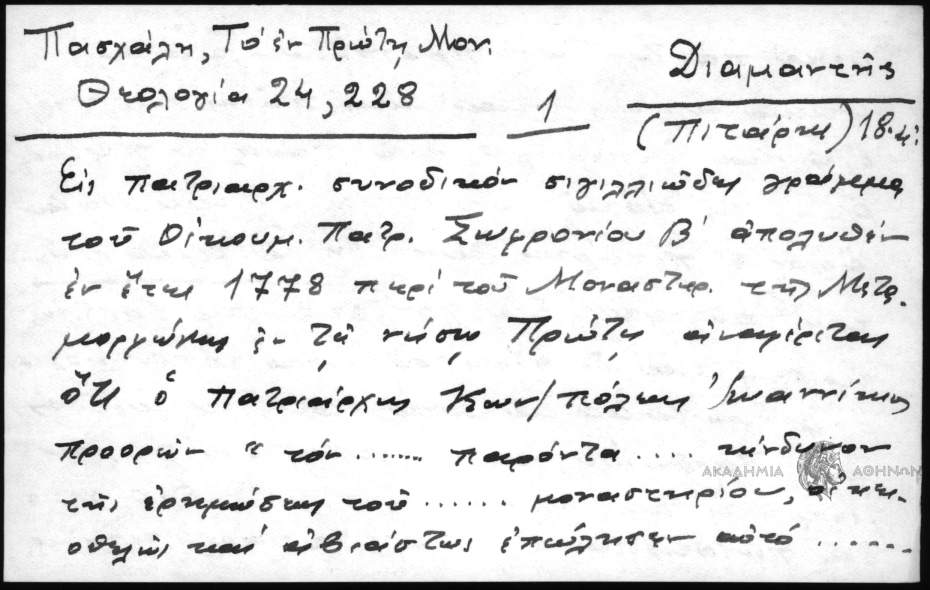 Πασχάλη, Τό ἐν Πρώτῃ Μον.
Θεολογία 24, 228
1
Διαμαντῆς
(Πιτσάρης) 18.αἰ.
Εἰς πατριαρχ. συνοδικόν σιγιλλιῶδες γράμμα
τοῦ Οἰκουμ. Πατρ. Σωφρονίου Β' ἀπολυθέν
ἐν ἔτει 1778 περί τοῦ Μοναστηρ. τῆς Μετα-
μορφώσεως ἐν τῇ νήσῳ Πρώτῃ ἀναφέρεται
ὅτι ὁ πατριάρχης Κων/πόλεως Ἰωαννίκιος
προορῶν " τόν ....... παρόντα .... κίνδυνον
τῆς ἐρημώσεως τοῦ ...... μοναστηρίου, οἰκει-
οθελῶς καί ἀβιάστως ἐπώλησεν αὐτό ......
ΑΚΑΔΗΜΙΑ ΑΘΗΝΩΝ